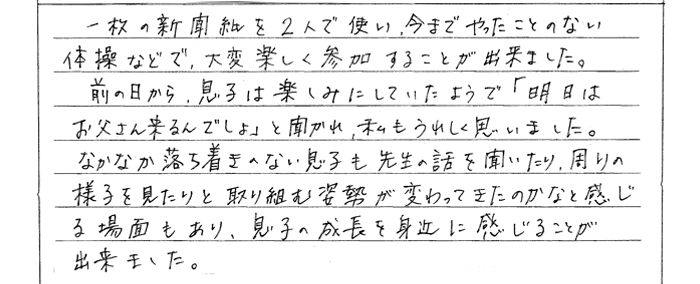 一枚の新聞紙を2人で使い、今までやったことのない
体操などで、大変楽しく参加することが出来ました。
前の日から、息子は楽しみにしていたようで「明日は
お父さん来るんでしょ」と聞かれ、私もうれしく思いました。
なかなか落ち着きのない息子も先生の話を聞いたり、周りの
様子を見たりと取り組む姿勢が変わってきたのかなと感じ
る場面もあり、息子の成長を身近に感じることが
出来ました。